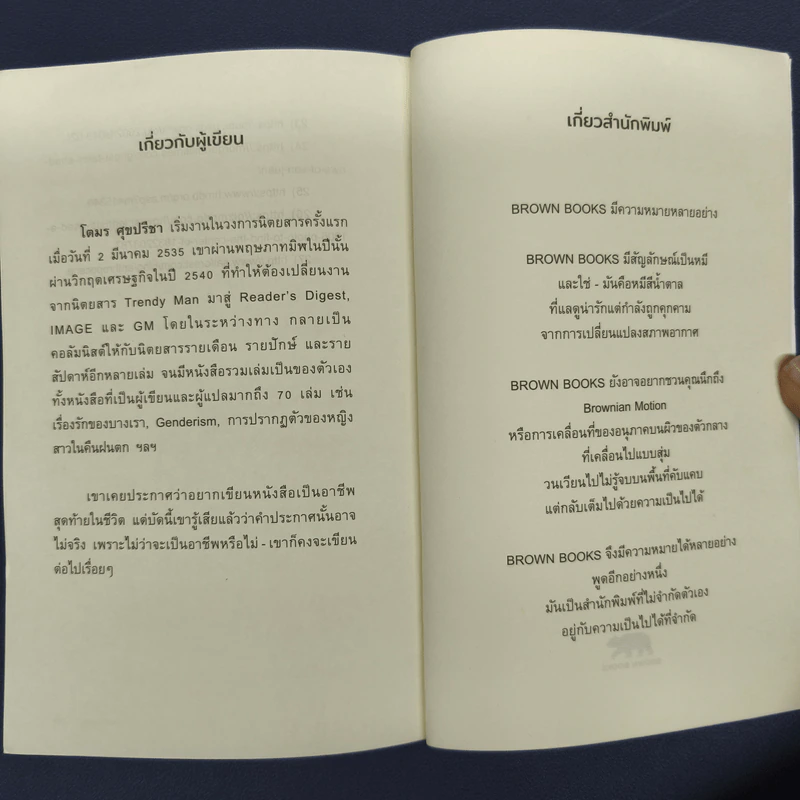 เกี่ยวกับผู้เขียน
โตมร ศุขปรีชา เริ่มงานในวงการนิตยสารครั้งแรก
เมื่อวันที่ 2 มีนาคม 2535 เขาผ่านพฤษภาทมิฬในปีนั้น
ผ่านวิกฤตเศรษฐกิจในปี 2540 ที่ทำให้ต้องเปลี่ยนงาน
จากนิตยสาร Trendy Man มาสู่ Reader's Digest,
IMAGE และ GM โดยในระหว่างทาง กลายเป็น
คอลัมนิสต์ให้กับนิตยสารรายเดือน รายปักษ์ และราย
สัปดาห์อีกหลายเล่ม จนมีหนังสือรวมเล่มเป็นของตัวเอง
ทั้งหนังสือที่เป็นผู้เขียนและผู้แปลมากถึง 70 เล่ม เช่น
เรื่องรักของบางเรา, Genderism, การปรากฏตัวของหญิง
สาวในคืนฝนตก ฯลฯ
เขาเคยประกาศว่าอยากเขียนหนังสือเป็นอาชีพ
สุดท้ายในชีวิต แต่บัดนี้เขารู้เสียแล้วว่าคำประกาศนั้นอาจ
ไม่จริง เพราะไม่ว่าจะเป็นอาชีพหรือไม่ - เขาก็คงจะเขียน
ต่อไปเรื่อยๆ
เกี่ยวสำนักพิมพ์
BROWN BOOKS มีความหมายหลายอย่าง
BROWN BOOKS มีสัญลักษณ์เป็นหมี
และใช่ - มันคือหมีสีน้ำตาล
ที่แลดูน่ารักแต่กำลังถูกคุกคาม
จากการเปลี่ยนแปลงสภาพอากาศ
BROWN BOOKS ยังอาจอยากชวนคุณนึกถึง
Brownian Motion
หรือการเคลื่อนที่ของอนุภาคบนผิวของตัวกลาง
ที่เคลื่อนไปแบบสุ่ม
วนเวียนไปไม่รู้จบบนพื้นที่คับแคบ
แต่กลับเต็มไปด้วยความเป็นไปได้
BROWN BOOKS จึงมีความหมายได้หลายอย่าง
พูดอีกอย่างหนึ่ง
มันเป็นสำนักพิมพ์ที่ไม่จำกัดตัวเอง
อยู่กับความเป็นไปได้ที่จำกัด